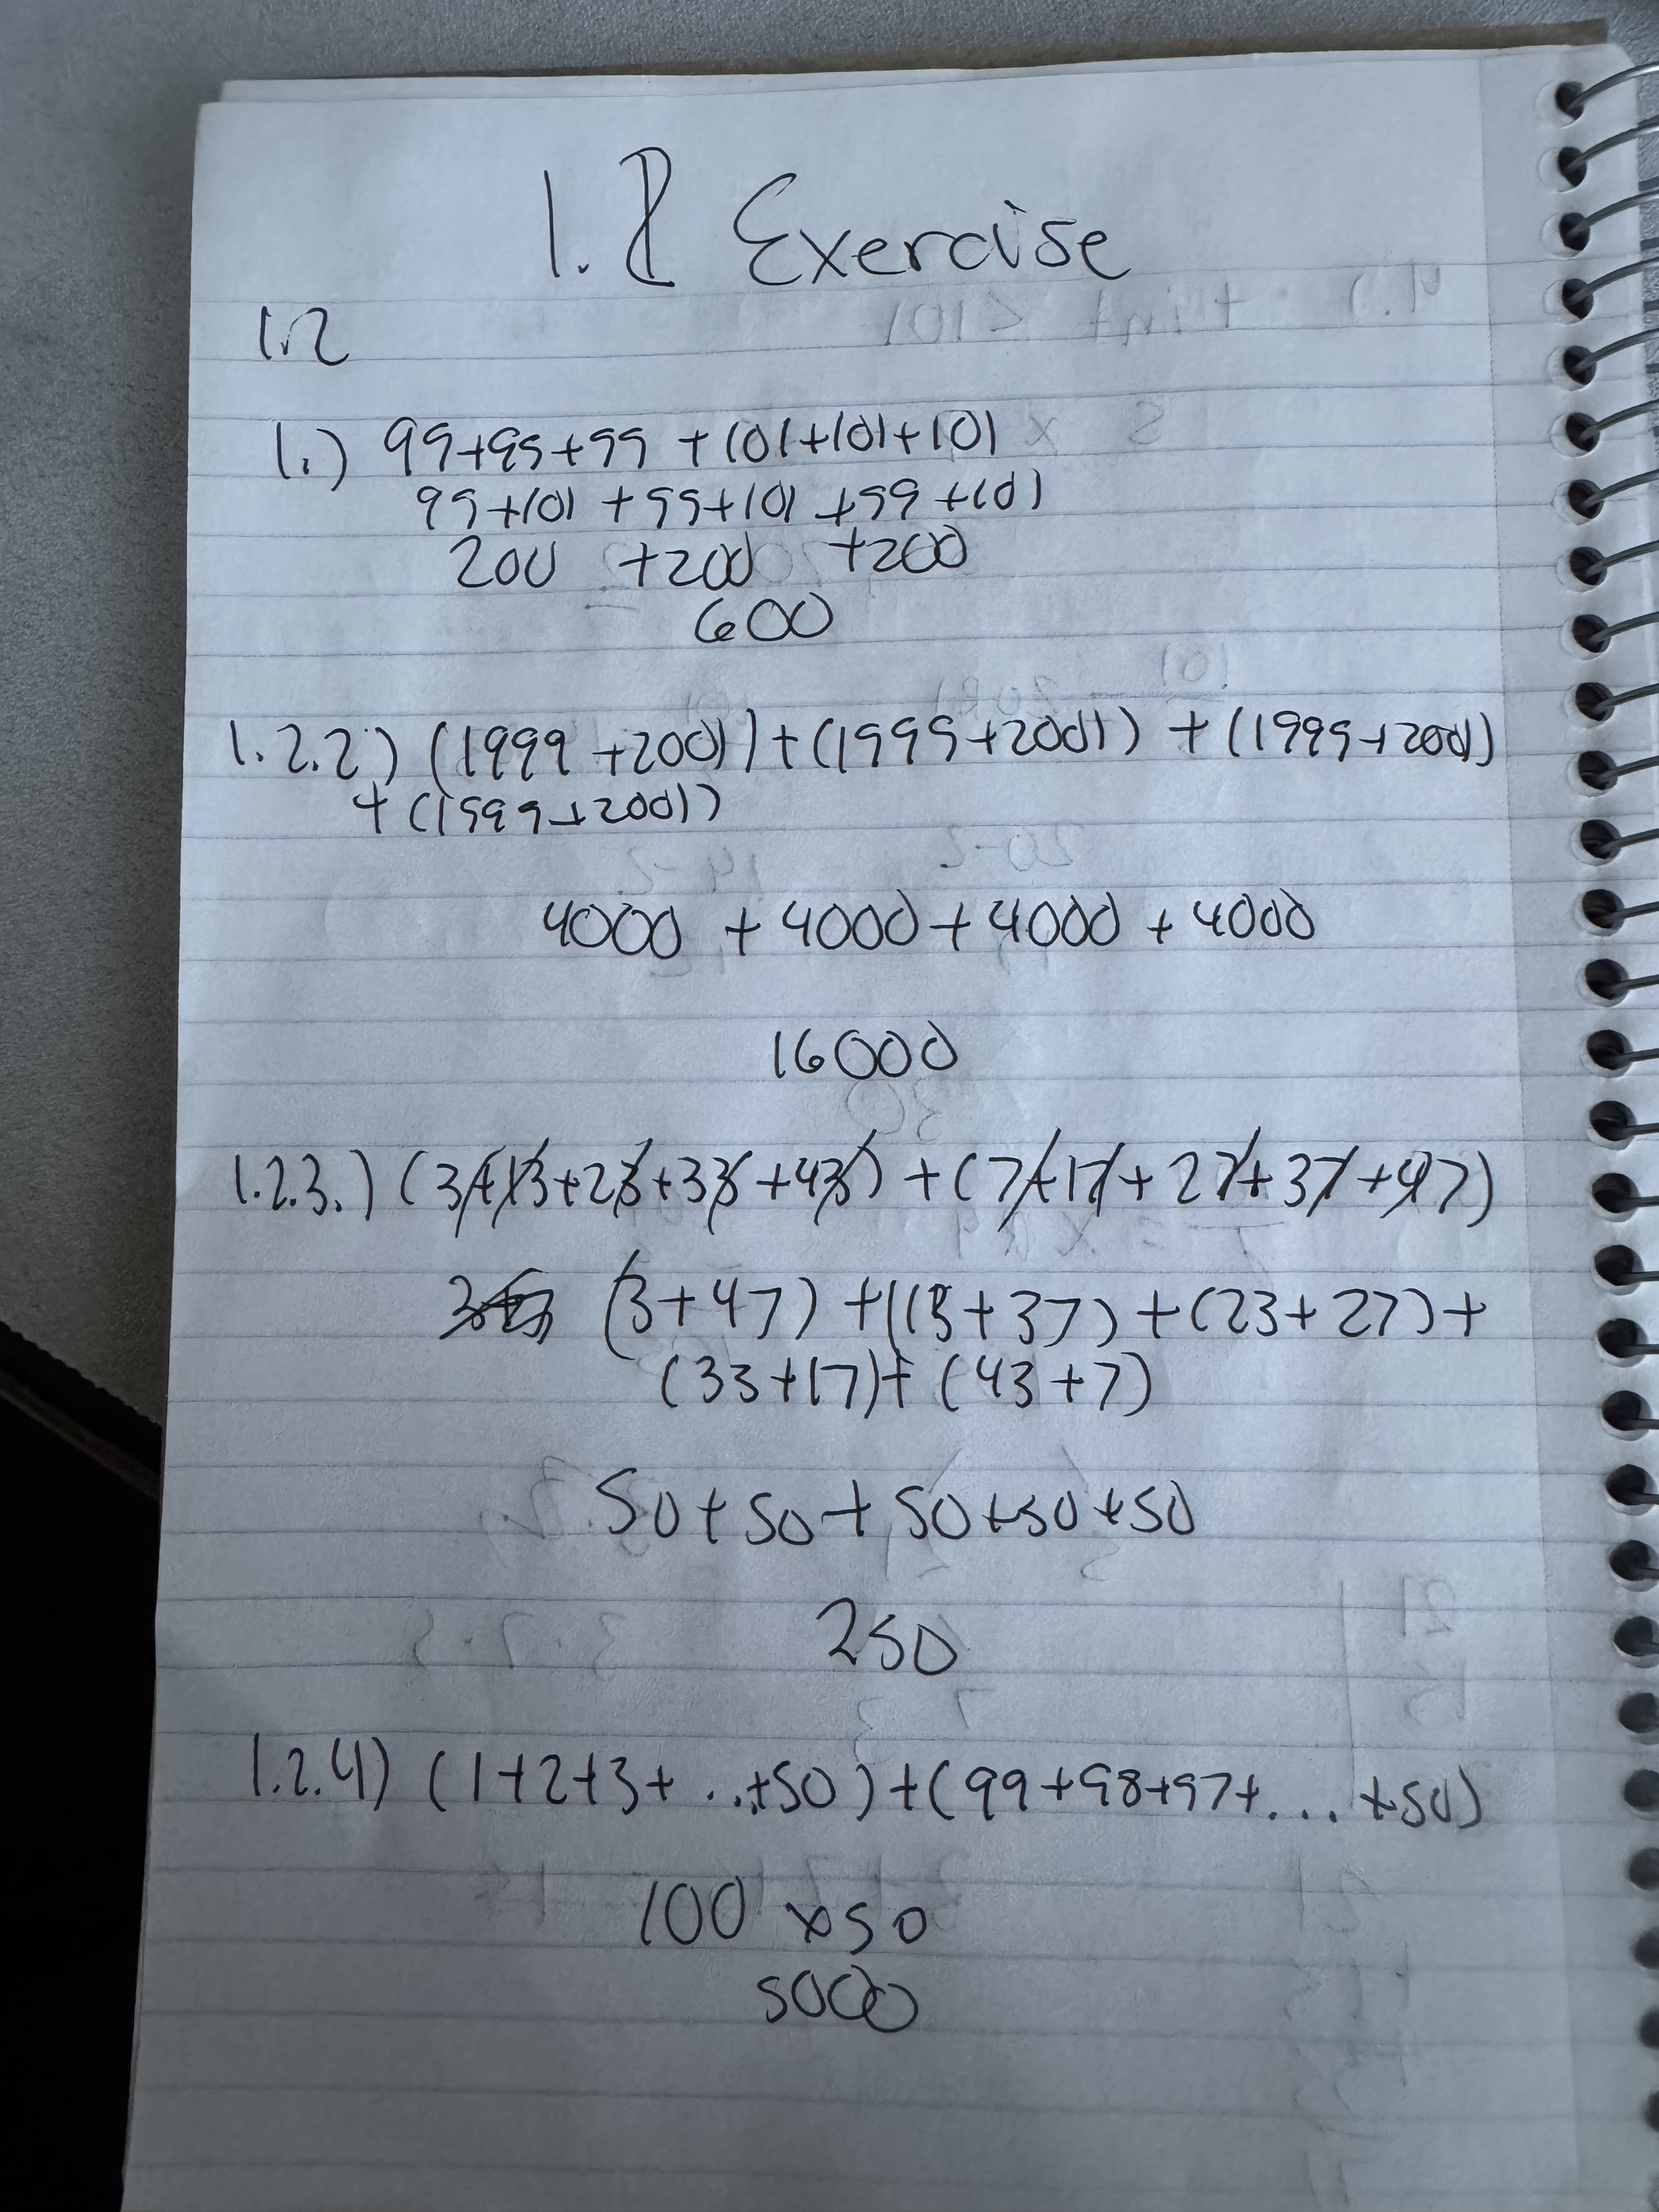 1.2 Exercise
1.2
1.) 99+99+99 +101+101+101
99+101 +99+101 +99+101
200 +200 +200
600
1.2.2) (1999+2001)+(1999+2001) +(1999+2001)
+(1999+2001)
4000 + 4000+4000 + 4000
16000
1.2.3.) (3+13+23+33+43) +(7+17+27+37+47)
(3+47) +(13+37)+(23+27)+
(33+17)+(43+7)
50+50+50+50+50
250
1.2.4) (1+2+3+...+50)+(99+98+97+... +50)
100 x50
5000